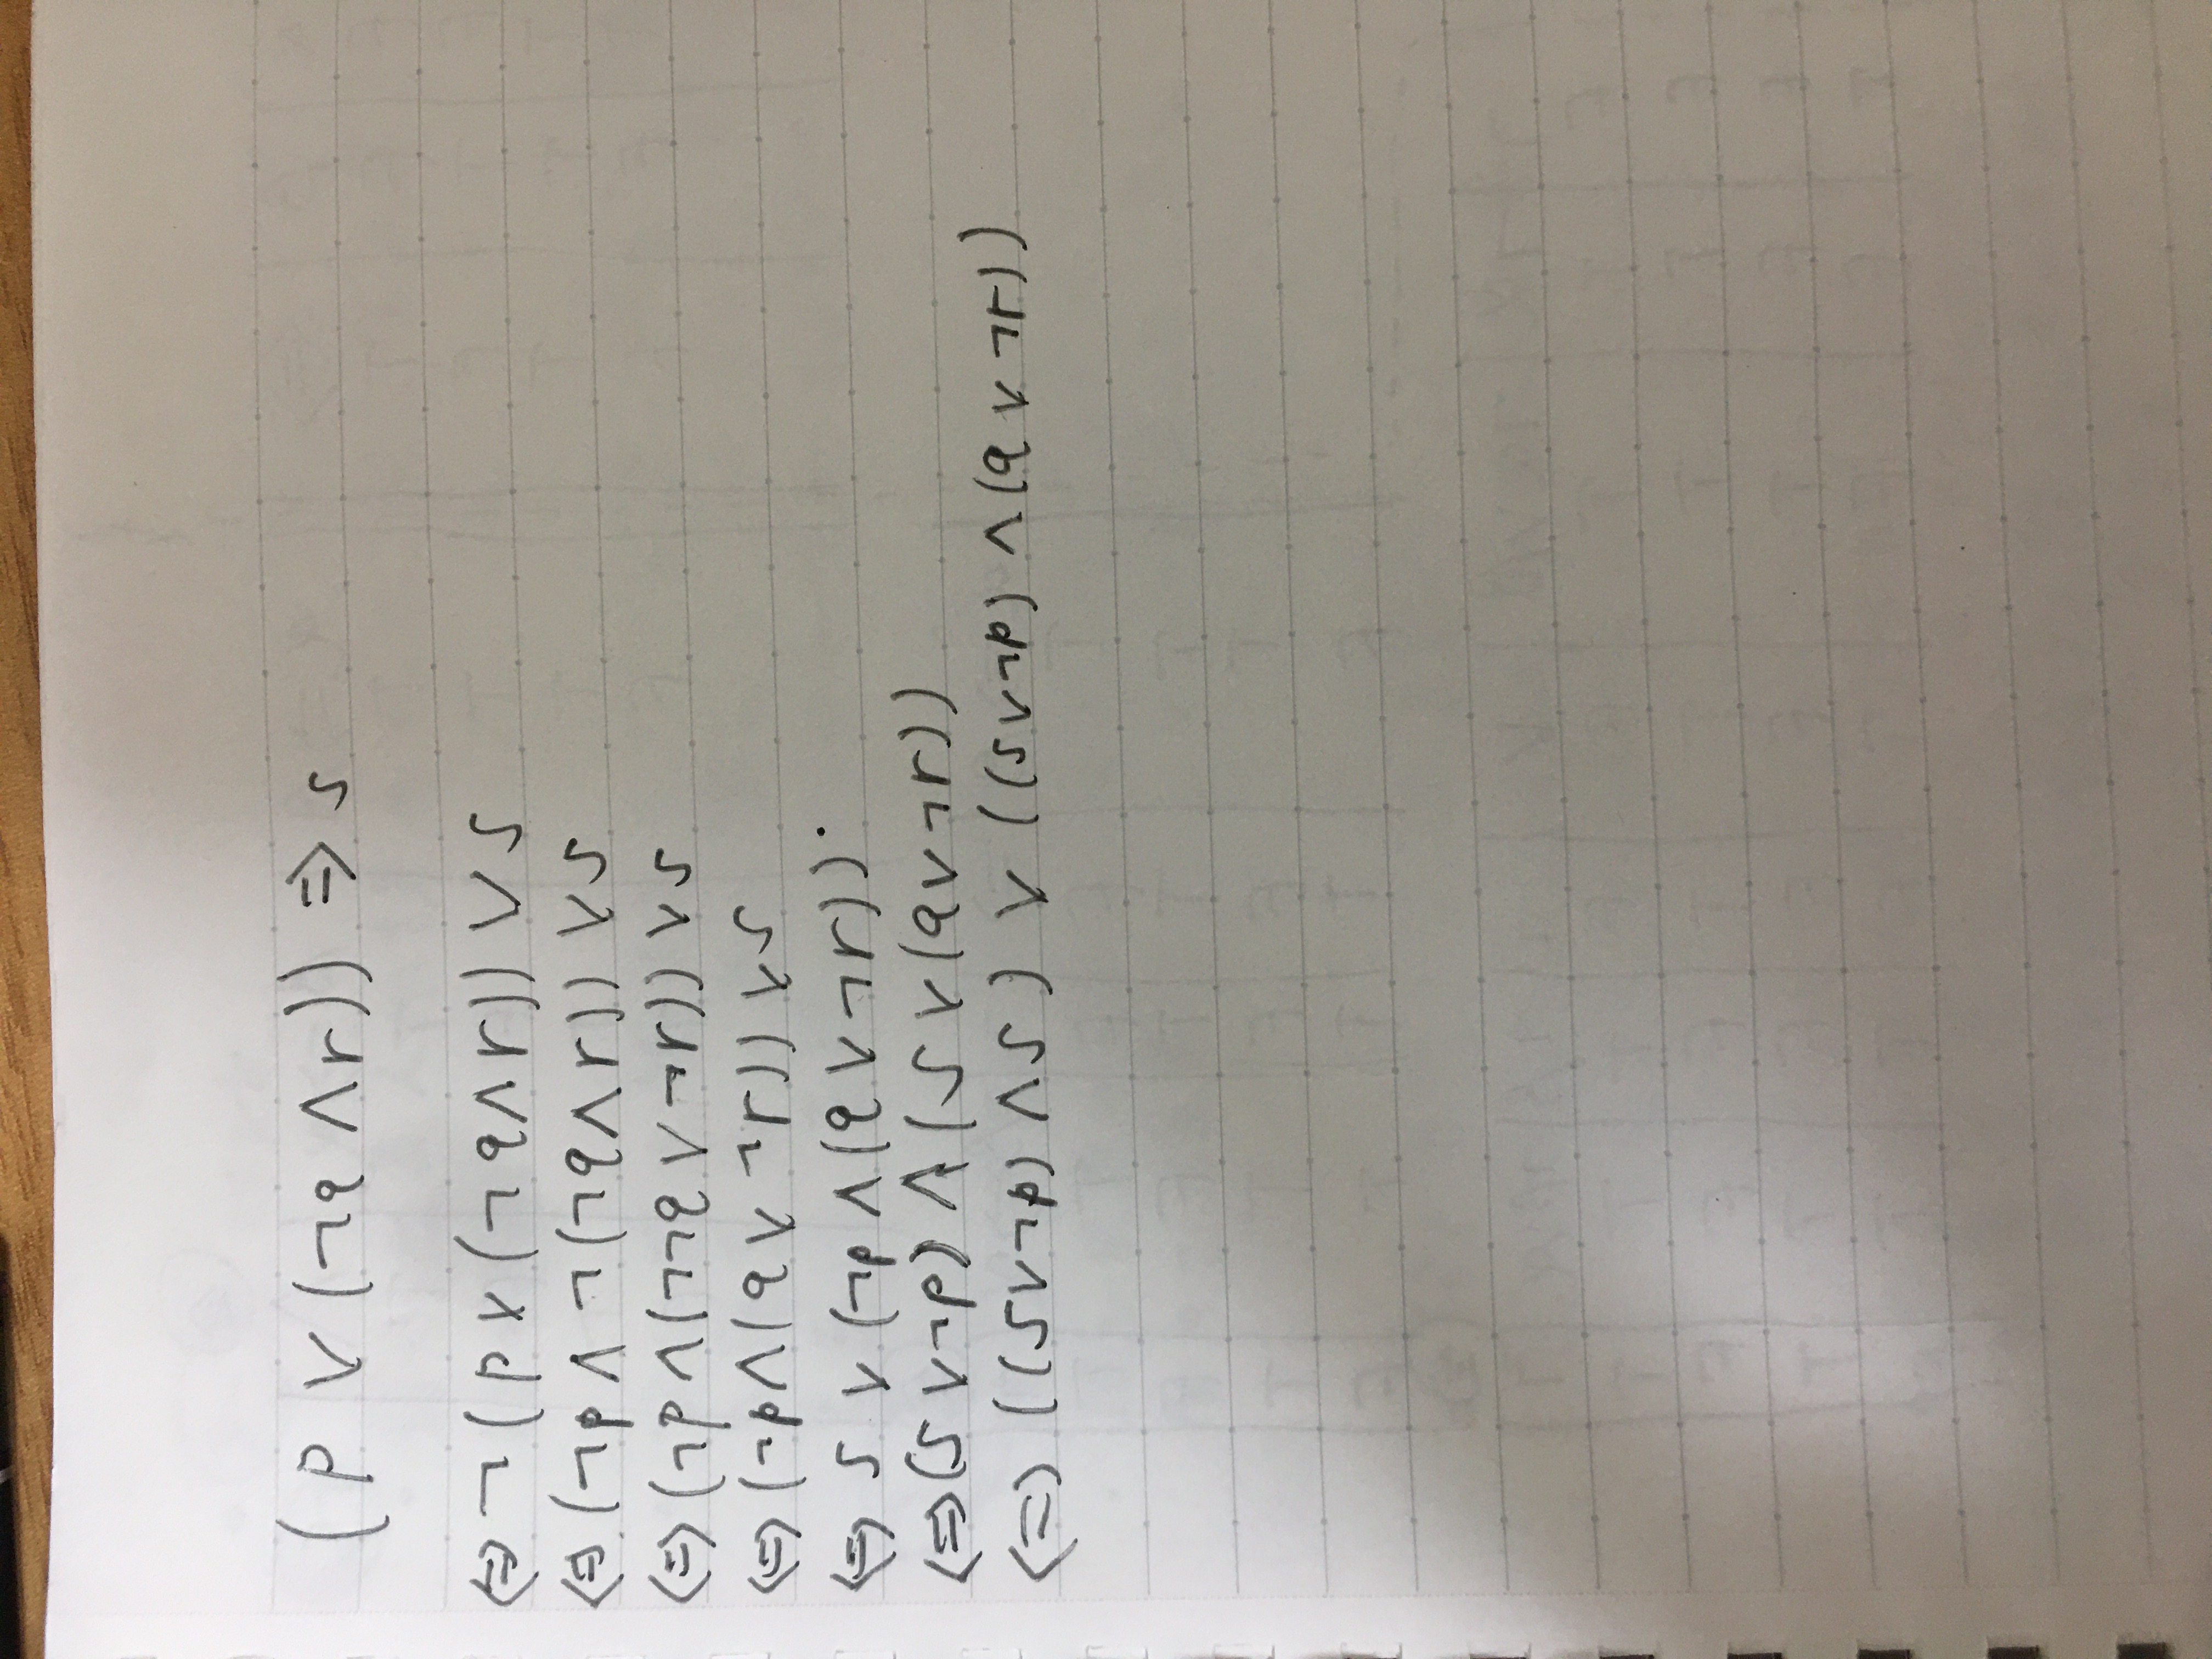 (p ∨ (¬q ∧ r)) ⇒ s
⇔ ¬(p ∨ (¬q ∧ r)) ∨ s
⇔ (¬p ∧ ¬(¬q ∧ r)) ∨ s
⇔ (¬p ∧ (¬¬q ∨ ¬r)) ∨ s
⇔ (¬p ∧ (q ∨ ¬r)) ∨ s
⇔ s ∨ (¬p ∧ (q ∨ ¬r))
⇔ (s ∨ ¬p) ∧ (s ∨ (q ∨ ¬r))
⇔ ((s ∨ ¬p) ∧ s) ∨ ((s ∨ ¬p) ∧ (q ∨ ¬r))